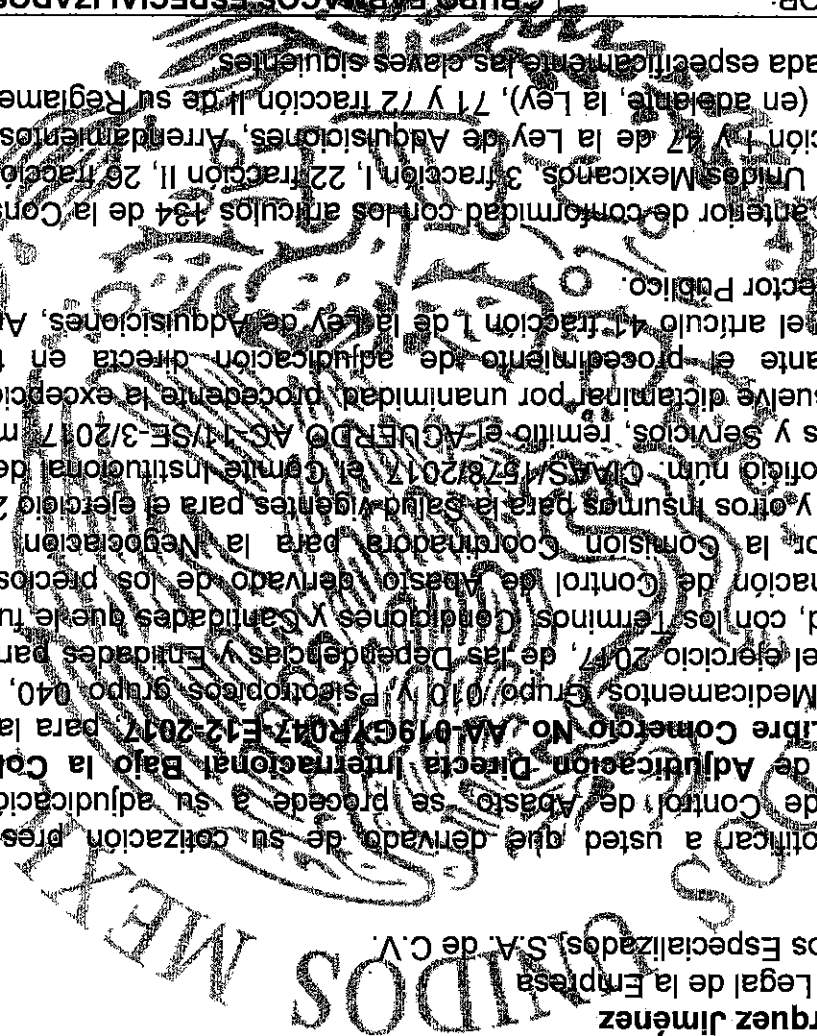 rquez Jiménez
Legal de la Empresa
os Especializados, S.A. de C.V.
UNIDOS MEXI
otificar a usted que derivado de su cotización pres
de Control de Abasto, se procede a su adjudicació
de Adjudicación Directa Internacional Bajo la Cob
Libre Comercio No. AA-019GYR047-E12-2017, para la
Medicamentos Grupo 010 y Psicotrópicos grupo 040,
el ejercicio 2017, de las Dependencias y Entidades par
d, con los Términos, Condiciones y Cantidades que le fu
nación de Control de Abasto, derivado de los precios
or la Comisión Coordinadora para la Negociación
y otros Insumos para la Salud vigentes para el ejercicio 2
oficio núm. CIAAS/1578/2017, el Comité Institucional de
s y Servicios, remitió el ACUERDO AC-11/SE-3/2017, m
suelve dictaminar por unanimidad, procedente, la excepció
ante el procedimiento de adjudicación directa en t
el artículo 41 fracción I de la Ley de Adquisiciones, Ar
ector Público.
anterior de conformidad con los artículos 134 de la Cons
Unidos Mexicanos, 3 fracción I, 22 fracción II, 26 fracció
ción I y 47 de la Ley de Adquisiciones, Arrendamientos
(en adelante, la Ley), 71 y 72 fracción II de su Reglame
ada específicamente las claves siguientes
OR: GRUPO FARMACOS ESPECIALIZADOS